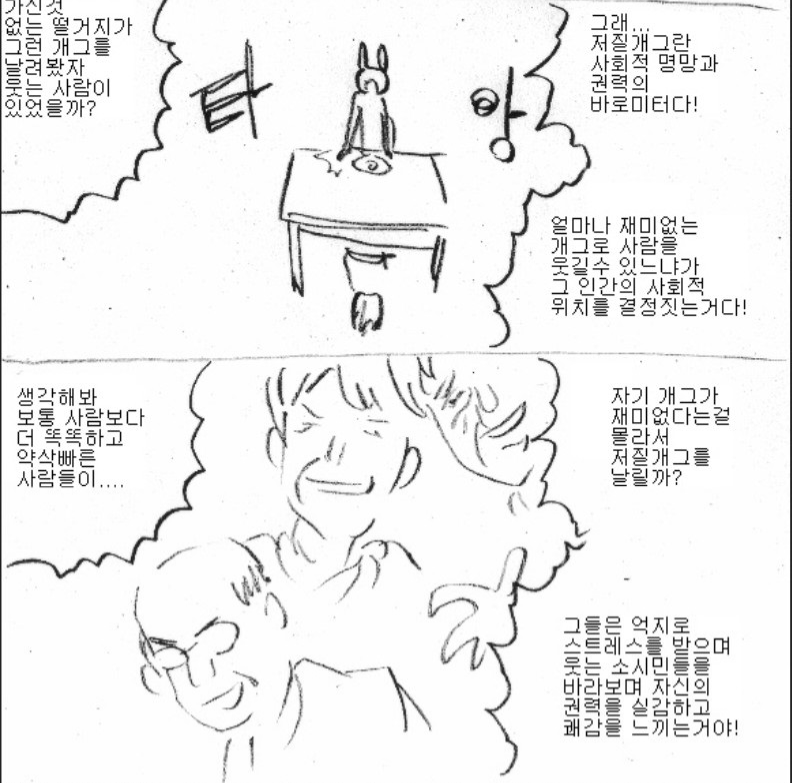 가진것
없는 떨거지가
그런 개그를
날려봤자
웃는 사람이
있었을까?
그래...
저질개그란
사회적 명망과
권력의
바로미터다!
탁
얼마나 재미없는
개그로 사람을
웃길수 있느냐가
그 인간의 사회적
위치를 결정짓는거다!
생각해봐
보통 사람보다
더 똑똑하고
약삭빠른
사람들이....
자기 개그가
재미없다는걸
몰라서
저질개그를
날릴까?
그들은 억지로
스트레스를 받으며
웃는 소시민들을
바라보며 자신의
권력을 실감하고
쾌감을 느끼는거야!